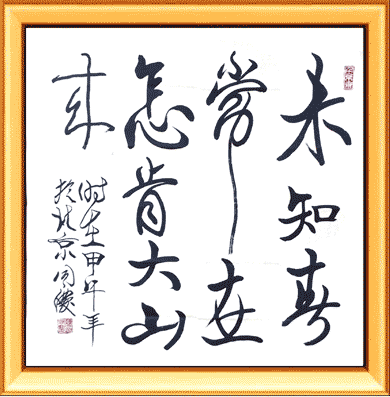 未知春
常在
怎肯大山
来
时在甲午年
於北京